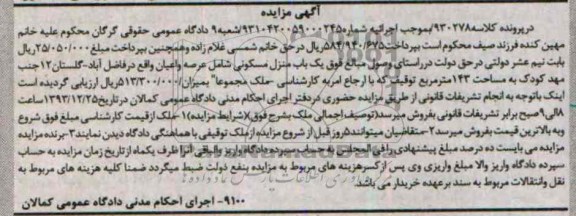 آگهی مزایده
درپرونده کلاسه۹۳۰۲۷۸/بموجب اجرائیه شماره۹۳۱۰۴۲۰۰۵۹۰۰۰۲۴۵/شعبه۹ دادگاه عمومی حقوقی گرگان محکوم علیه خانم
مهین کنده فرزند صیف محکوم است بپرداخت۵۸۴/۹۴۰/۶۷۵ریال در حق خانم شمسی غلام زاده وهمچنین بپرداخت مبلغ۲۵/۰۵۰/۰۰۰ریال
بابت نیم عشر دولتی درحق دولت درراستای وصول مبالغ فوق یک باب منزل مسکونی شامل عرصه واعیان واقع درفاضل آباد-گلستان۱۲جنب
مهد کودک به مساحت ۱۴۳مترمربع توقیف که با ارجاع امربه کارشناسی -ملک مجموعا" بمیزان/۵۱۳/۳۰۰/۰۰۰ریال ارزیابی گردیده است
اینک باتوجه به انجام تشریفات قانونی از طریق مزایده حضوری دردفتر اجرای احکام مدنی دادگاه عمومی کمالان درتاریخ۱۳۹۳/۱۲/۲۵ساعت
۸الی۹صبح برابر تشریفات قانونی بفروش میرسد(توصیف اجمالی ملک بشرح فوق)شرایط مزایده)۱-ملک ازقیمت کارشناسی مبلغ فوق شروع
وبه بالاترین قیمت بفروش میرسد۲-متقاضیان میتوانند۵روز قبل از شروع مزایده ازملک توقیفی با هماهنگی دادگاه دیدن نمایند۳-برنده مزایده
می بایست ده درصد مبلغ پیشنهادی را فی المجلس به حساب سپرده دادگاه واریز والباقی آنرا ظرف یکماه از تاریخ زمان مزایده به حساب
سپرده دادگاه واریز والا مبلغ واریزی وی پس ازکسرهزینه های مربوط به مزایده بنفع دولت ضبط میگردد ضمنا کلیه هزینه های مربوط به
نقل وانتقالات مربوط به سند برعهده خریدار می باشد
۹۱۰۰- اجرای احکام مدنی دادگاه عمومی کمالان